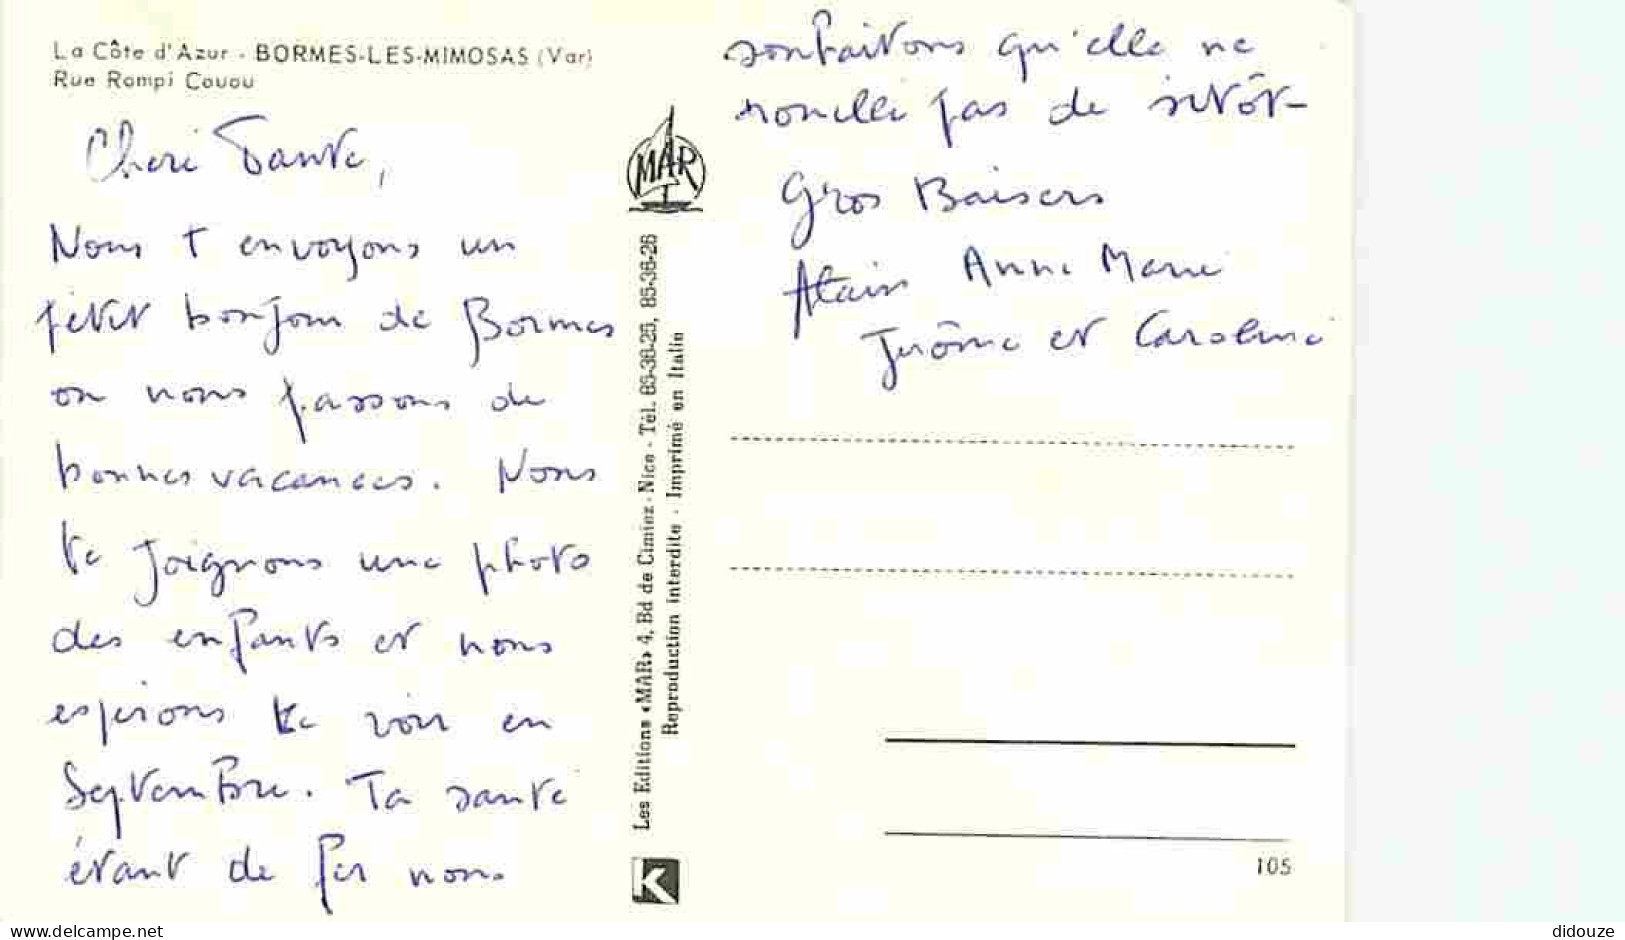 La Côte d'Azur - BORMES-LES-MIMOSAS (Var)
Rue Rompi Couou
Cheri Tante,
Nous t envoyons un
petit bonjour de Bormes
ou nous passons de
bonnes vacances. Nous
te joignons une photo
des enfants et nous
espérons te voir en
Septembre. Ta santé
étant de fer nous
souhaitons qu'elle ne
rouille pas de sitôt-
Gros Baisers
Alain Anne Marie
Jérôme et Caroline
MAR
Les Editions «MAR» 4, Bd de Cimiez - Nice - Tél. 85-36-26, 85-36-26
Reproduction interdite - Imprimé en Italie
K
105
delcampe.net
didouze